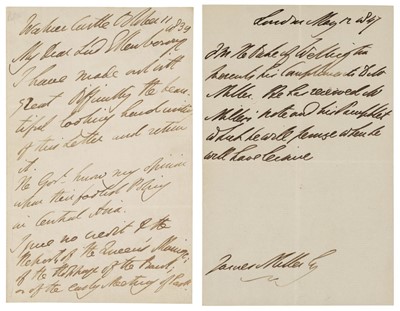 Walmer Castle October 11
1839
My Dear Lord Ellenborough
I have made out with
great difficulty the beau
tiful looking handwriting
of this Letter and return
it.
The Govt. know my opinion
upon their foolish Policy
in Central Asia.
I give no credit to the
Reports of the Queen's Marriage;
of the stoppage of the Bank;
or of the early Meeting of Parlt.
London May 12 1847
F.M. the Duke of Wellington
presents his Compliments to Mr
Miller. He has received Mr
Miller's note and his Pamphlet
which he will peruse when he
will have leisure
James Miller Esq